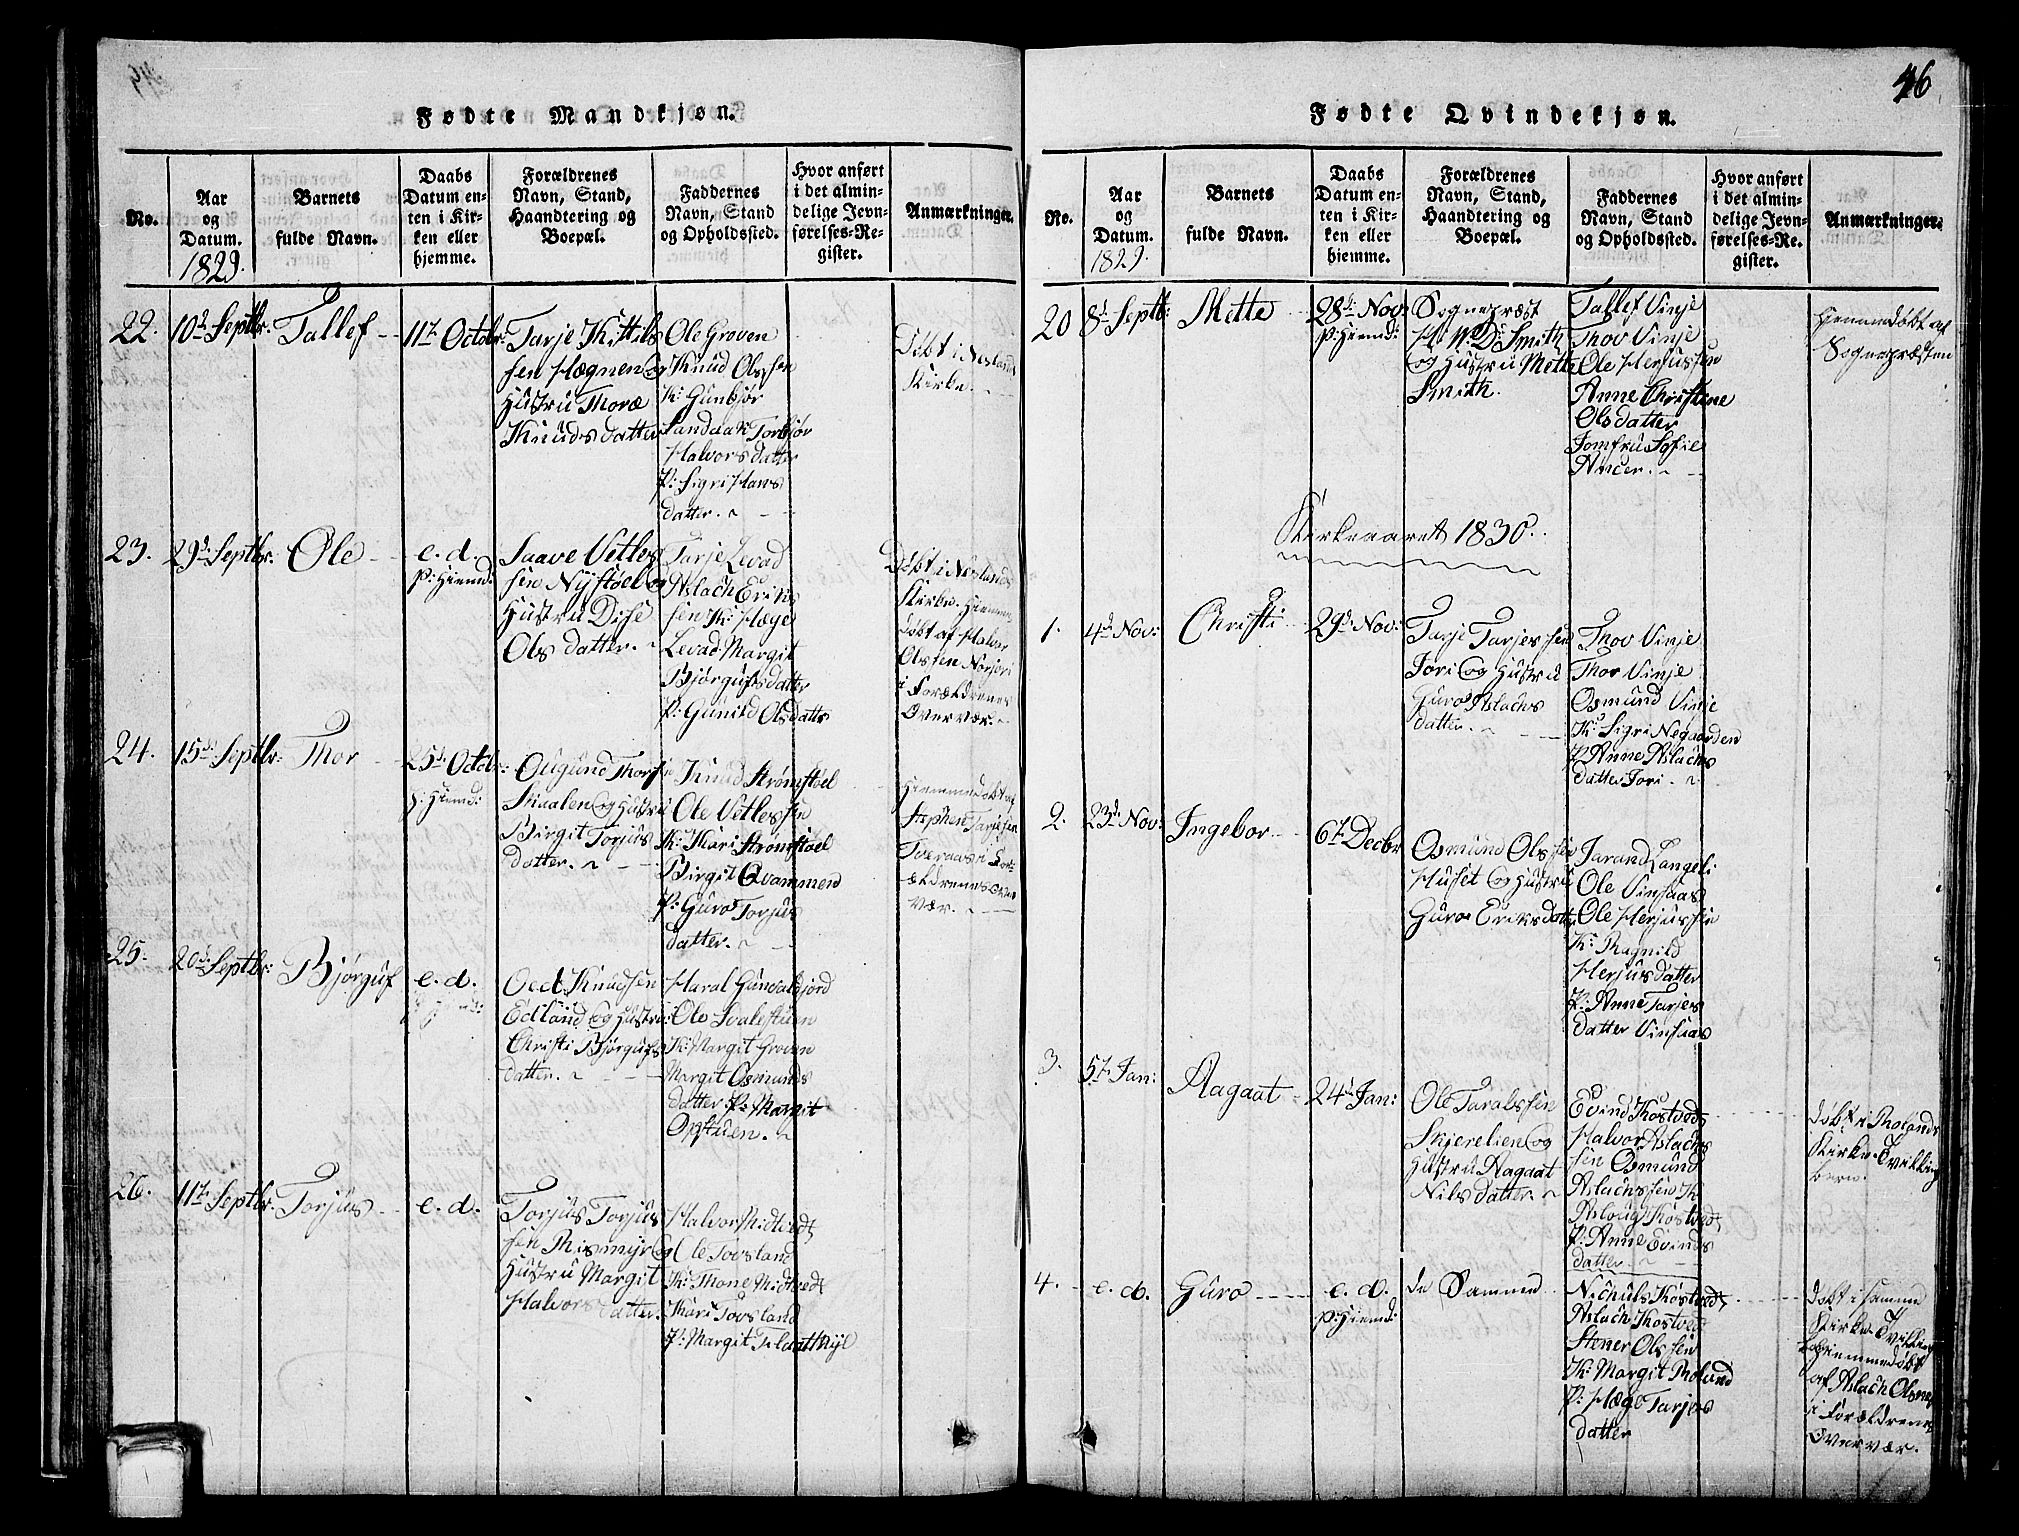 Fødte Mandkjøn.
No.
Aar
og
Datum.
1829.
Barnets
fulde Navn.
Daabs
Datum en-
ten i Kir-
ken eller
hjemme.
Forældrenes
Navn, Stand,
Haandtering og
Boepæl.
Faddernes
Navn, Stand
og Opholdssted.
Hvor anført
i det almin-
delige Jevn-
førelses-Re-
gister.
Anmærkninger.
22.
10d Septbr.
Tallef
11t Octobr:
Tarje Kittils
sen Hægnen og
Hustru Thoræ
Knudsdatter
Ole Groven
Knud Olssen
K: Gunbjør
Sandaak Torbjør
Halvorsdatter
P: Sigri Hans
datter.
Døbt i Neslands
Kirke.
23.
29d Septbr.
Ole
e. d.
P: Hiemd:
Saave Vetles
sen Nystøel og
Hustru Dise
Olsdatter.
Tarje Levad
Aslach Eriks
sen K: Hæge
Levad Margit
Bjørgufsdatter
P: Gunild Olsdatter
Døbt i Neslands
Kirke. Hiemme
døbt af Halvor
Olssen Norjori
i Forældrenes
Overvær.
24.
15d Septbr:
Thor
25d Octobr:
P: Hiemd:
Ougund Thorsen
Skaalen og Hustru
Birgit Torjus
datter.
Knud Strømstøel
Ole Vetlessen
K: Kari Strømstøel
Birgit Qvammen
P: Guro Torjus
datter.
Hiemmedøbt af
Stephen Tarjesen
i For
ældrenes Over
vær.
25.
20d Septbr:
Bjørguf
e. d.
P: Hiemd:
Oed Knudsen
Edland og Hustru:
Christi Bjørgufs
datter.
Haral Gundalsfjord
Ole Svalestuen
K: Margit Groven
Margit Osmunds
datter P: Margit
Opstuen.
26.
11t Septbr.
Torjus
e. d.
Torjus Torjus
sen Rismyr og
Hustru Margit
Halvorsdatter.
Halvor Midtvedt
Ole Tovsland
K: Thone Midtvedt
Kari Tovsland
P: Margit
46
Fødte Qvindekjøn.
No.
Aar
og
Datum.
1829.
Barnets
fulde Navn.
Daabs
Datum en-
ten i Kir-
ken eller
hjemme.
Forældrenes
Navn, Stand,
Haandtering og
Boepæl.
Faddernes
Navn, Stand
og Opholdssted.
Hvor anført
i det almin-
delige Jevn-
førelses-Re-
gister.
Anmærkninger.
20
8d Septb:
Mette
28d Nov:
P: Hiemd:
Sognepræst
H. W. D: Smith
og Hustru Mette
Smith.
Tallef Vinje
Thov Vinje
Ole Herjussen
Anne Christine
Olsdatter
Jomfru Sofie
Hiemmedøbt af
Sognepræsten
Kirkeaaret 1830.
1.
4d Nov:
Christi
29d Nov:
Tarje Tarjessen
Jori og Hustru
Guro Aslachs
datter.
Thov Vinje
Thor Vinje
Osmund Vinje
K: Sigri Negaarden
P. Anne Aslachs
datter Jori.
2.
23d Nov:
Ingebor
6t Decbr
Osmund Olssen
Huset og Hustru
Guro Eriksdatter
Jarand Langeli
Ole Vinsaas
Ole Herjussen
K: Ragnild
Herjusdatter
P: Anne Tarjes
datter Vinsaas
3.
5t Jan:
Aagaat
24d Jan:
Ole Taralssen
Skjerelien og
Hustru Aagaat
Nilsdatter.
Evind Kostvedt
Halvor Aslachs
sen Osmund
Aslachssen K
Aslaug Kostvedt
P: Anne Evinds
datter.
døbt i Rolands
Kirke. Tvilling
børn.
4.
e. d.
Guro
e. d.
P: Hiemd:
de Sammed
Nichuls Kostvedt
Aslach Kostvedt
Stener Olssen
K: Margit Roland
P: Hæge Tarjes
datter
døbt i samme
Kirke. Tvilling
Hiemmedøbt
af Aslach Olsen
i Forældrenes
Overvær.